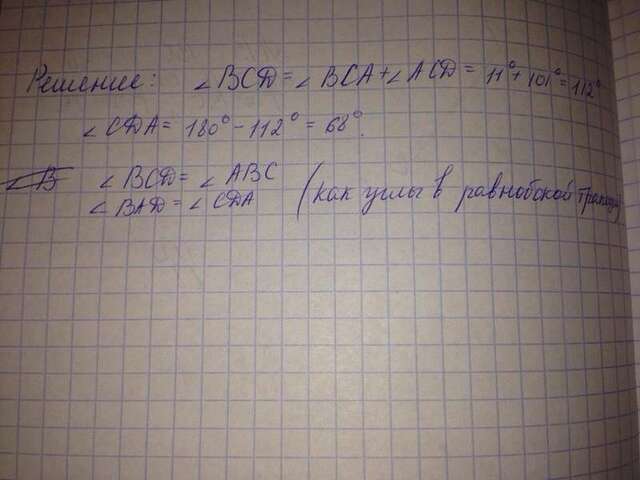 Решение: ∠BCD = ∠BCA + ∠ACD = 11° + 101° = 112°
∠CDA = 180° - 112° = 68°.
∠B ∠BCD = ∠ABC
∠BAD = ∠CDA (как углы в равнобокой трапеции)